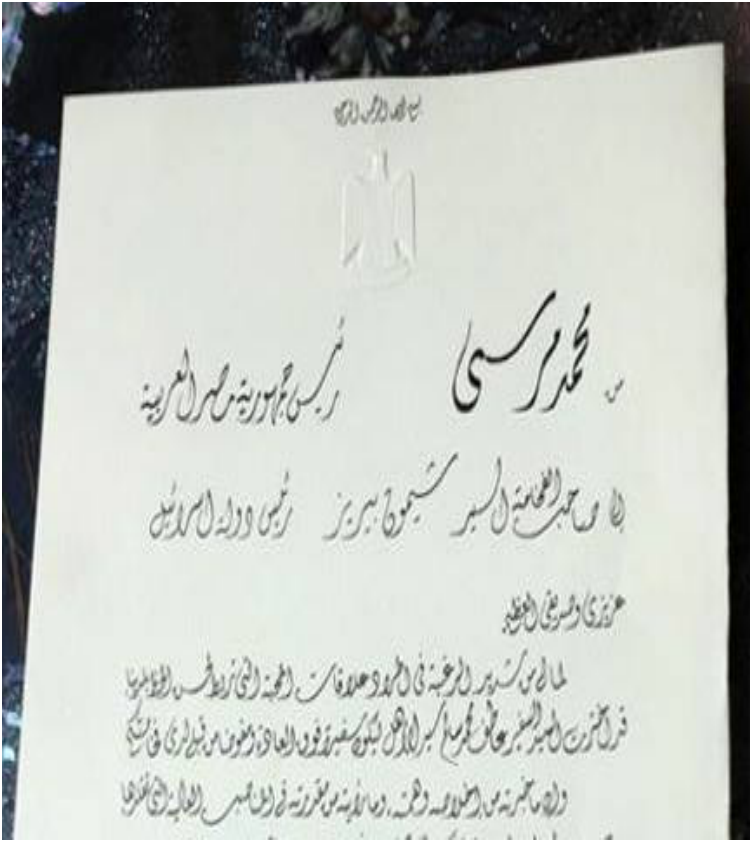 بسم الله الرحمن الرحيم
من محمد مرسى رئيس جمهورية مصر العربية
إلى صاحب الفخامة السيد شيمون بيريز رئيس دولة اسرائيل
عزيزى وصديقى العظيم
لما لى من شديد الرغبة فى اطراد علاقات المحبة التى تربط لحسن الحظ بلدينا
قد اخترت السيد السفير عاطف محمد سالم سيد الأهل ليكون سفيرا فوق العادة ومفوضا من قبلى لدى فخامتكم
وإن ما خبرته من اخلاصه وهمته وما رأيته من مقدرته فى المناصب العالية التى تقلدها